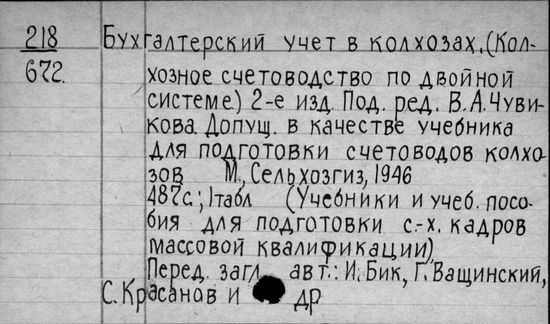 218 Бухгалтерский учет в колхозах. (Кол-
672. хозное счетоводство по двойной
системе) 2-е изд. Под. ред. В.А.Чуви-
кова. Допущ. в качестве учебника
для подготовки счетоводов колхо-
зов М., Сельхозгиз, 1946
487с.; 1табл (Учебники и учеб. посо-
бия для подготовки с.-х. кадров
массовой квалификации)
Перед. загл. авт.: И. Бик, Г. Ващинский,
С. Красанов и др